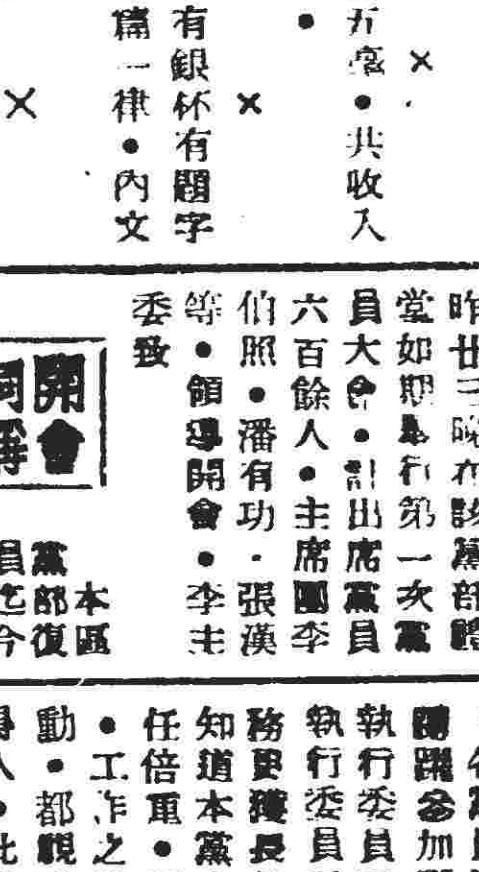 五毫●共收入
●
有銀杯有題字
篇一律●內文
昨廿三晚在該黨部禮
堂如期舉行第一次黨
員大會●計出席黨員
六百餘人●主席團李
伯照●潘有功·張漢
等●領導開會●李主
委致
開會
詞
本區
黨部復
員迄今
踴躍參加
執行委員
執行委員
務更獲長
知道本黨
任倍重●
●工作之
動●都覩